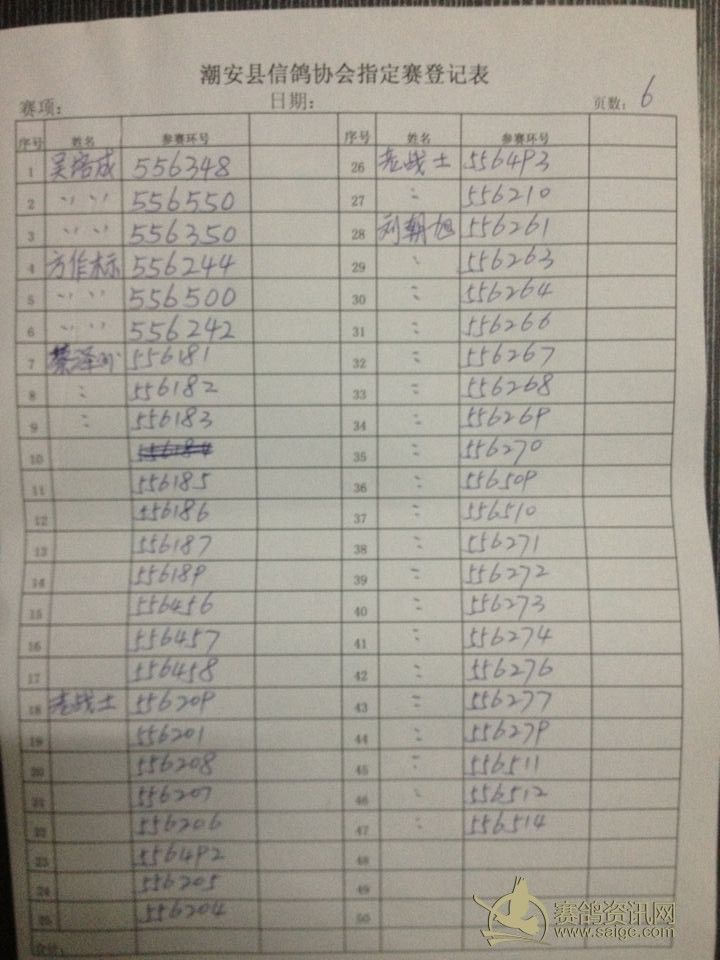 潮安县信鸽协会指定赛登记表
赛项: 日期: 页数: 6
序号 姓名 参赛环号 序号 姓名 参赛环号
1 吴培成 556348 26 老战士 556493
2 〃 〃 556550 27 〃 556210
3 〃 〃 556350 28 刘朝旭 556261
4 方作标 556244 29 〃 556263
5 〃 〃 556500 30 〃 556264
6 〃 〃 556242 31 〃 556266
7 蔡泽 556181 32 〃 556267
8 〃 556182 33 〃 556268
9 〃 556183 34 〃 556269
10 556184 35 〃 556270
11 556185 36 〃 556509
12 556186 37 〃 556510
13 556187 38 〃 556271
14 556189 39 〃 556272
15 556456 40 〃 556273
16 556457 41 〃 556274
17 556458 42 〃 556276
18 老战士 556209 43 〃 556277
19 556201 44 〃 556279
20 556208 45 〃 556511
21 556207 46 〃 556512
22 556206 47 〃 556514
23 556492 48
24 556205 49
25 556204 50
合计:
赛鸽资讯网
www.saigc.com